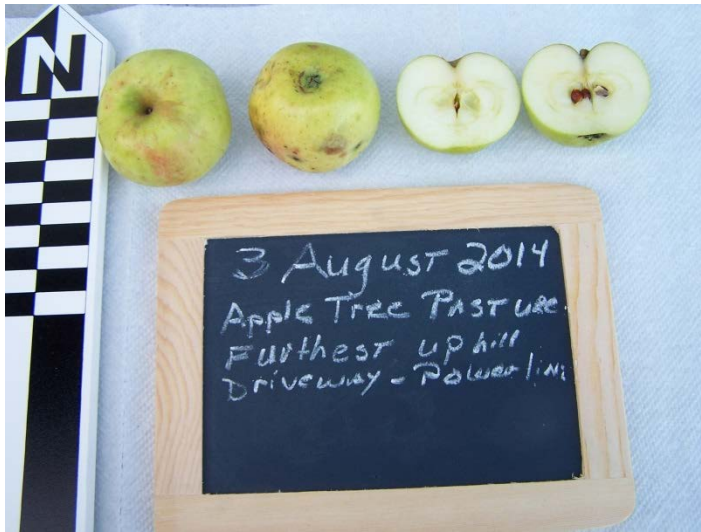 N
3 August 2014
Apple Tree Pasture
Furthest uphill
Driveway - Powerline